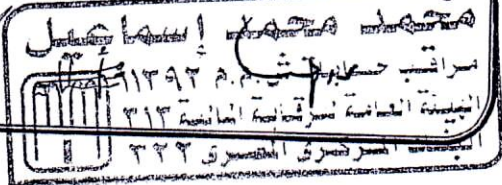 محمد محمد إسماعيل
مراقب م.م ١١٣٩٢
الهيئة العامة للرقابة المالية ٣١٣
البنك المركزى المصرى ٣٢٢